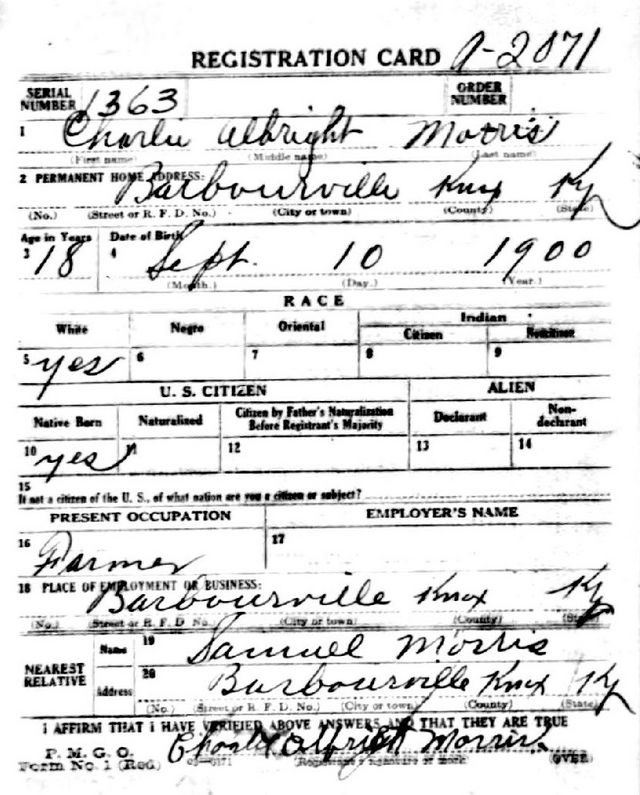 REGISTRATION CARD A-2071
SERIAL NUMBER 1363 ORDER NUMBER
1 Charlie Albright Morris
(First name) (Middle name) (Last name)
2 PERMANENT HOME ADDRESS: Barbourville Knox Ky
(No.) (Street or R. F. D. No.) (City or town) (County) (State)
Age in Years Date of Birth
3 18 4 Sept. 10 1900
(Month.) (Day.) (Year.)
RACE
White Negro Oriental Indian
Citizen Noncitizen
5 yes 6 7 8 9
U. S. CITIZEN ALIEN
Native Born Naturalized Citizen by Father's Naturalization Before Registrant's Majority Declarant Non-declarant
10 yes 11 12 13 14
15
If not a citizen of the U. S., of what nation are you a citizen or subject?
PRESENT OCCUPATION EMPLOYER'S NAME
16 Farmer 17
18 PLACE OF EMPLOYMENT OR BUSINESS:
Barbourville Knox Ky
(No.) (Street or R. F. D. No.) (City or town) (County) (State)
NEAREST RELATIVE Name 19 Samuel Morris
Address 20 Barbourville Knox Ky
(No.) (Street or R. F. D. No.) (City or town) (County) (State)
I AFFIRM THAT I HAVE VERIFIED ABOVE ANSWERS AND THAT THEY ARE TRUE
P. M. G. O.
Form No. 1 (Red) 03—6171 Charlie Albright Morris
(Registrant's signature or mark) (OVER)